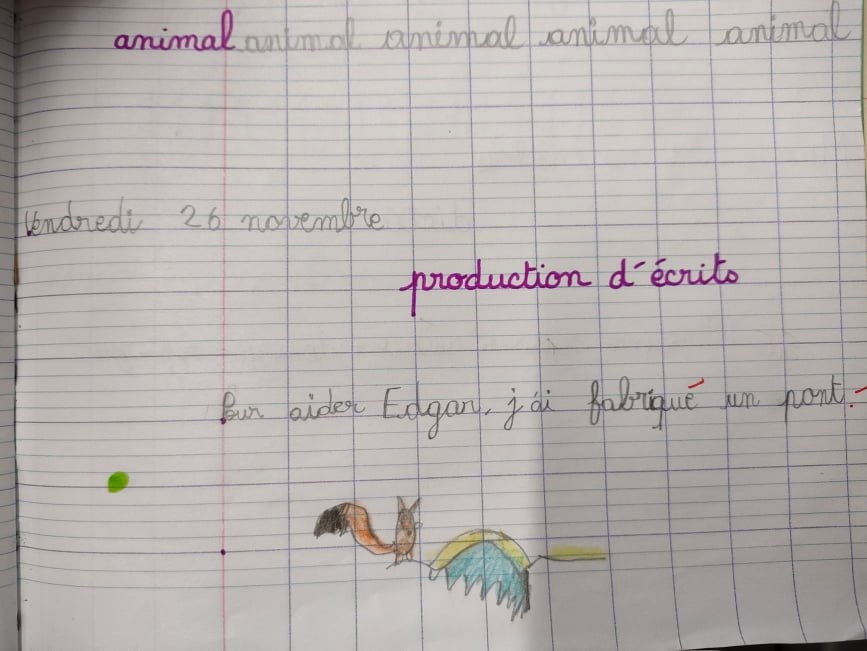 animal animal animal animal animal
Vendredi 26 novembre
production d'écrits
Pour aider Edgar, j'ai fabriqué un pont.